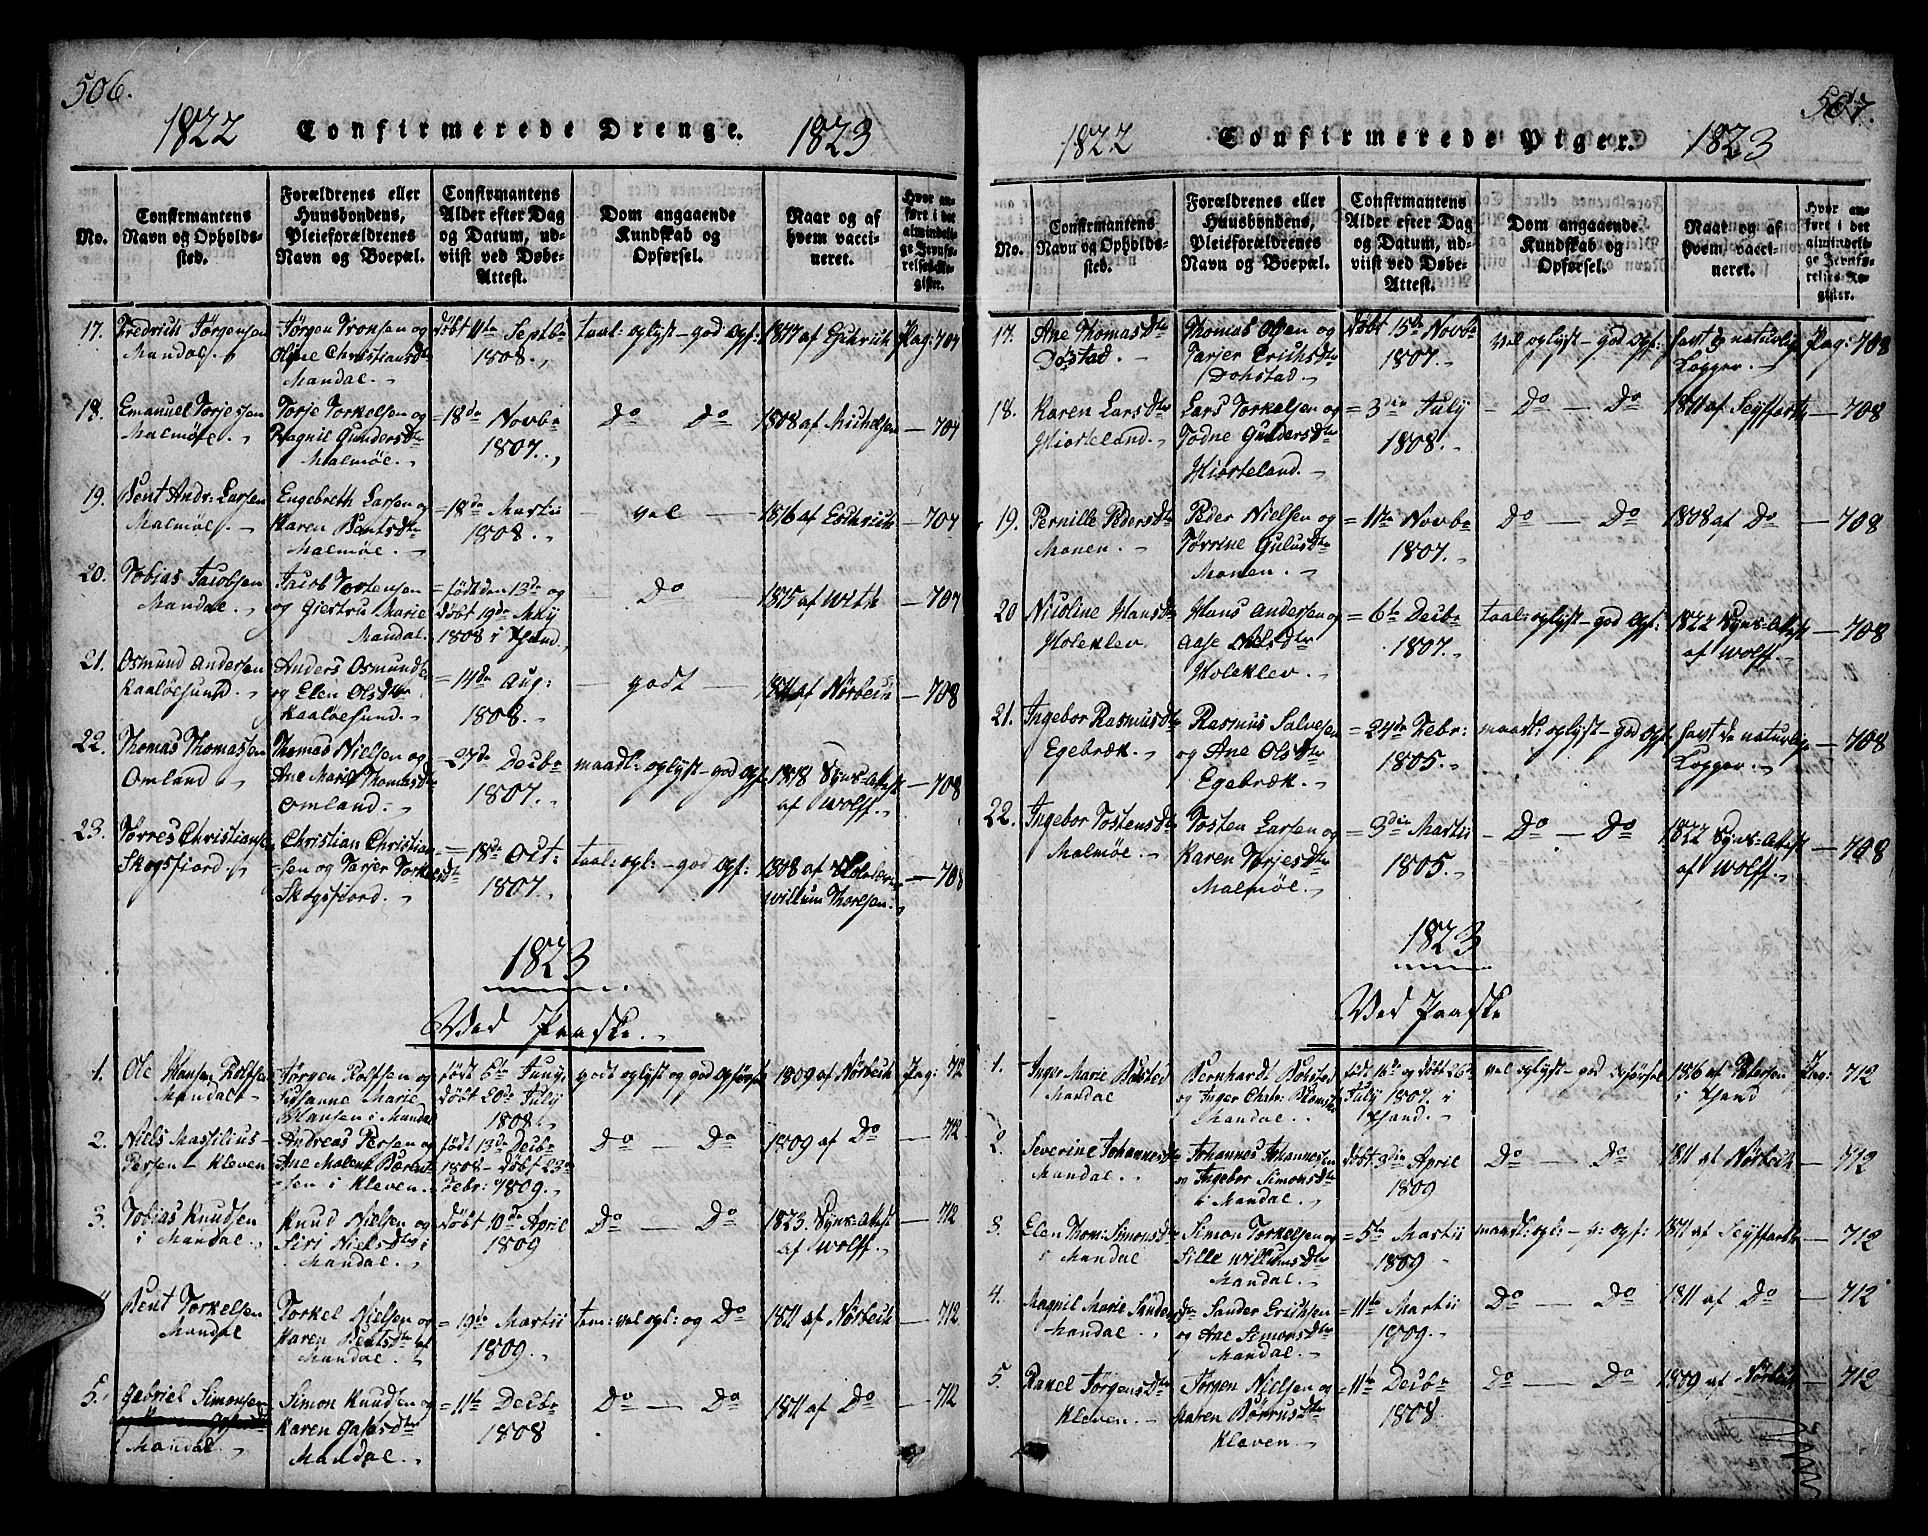 506.
1822 Confirmerede Drenge. 1823
No.
Confirmantens Navn og Opholds-sted.
Forældrenes eller Huusbondens, Pleieforældrenes Navn og Boepæl.
Confirmantens Alder efter Dag og Datum, ud-viist ved Døbe-Attest.
Dom angaaende Kundskab og Opførsel.
Naar og af hvem vacci-neret.
Hvor an-ført i det almindeli-ge Jevnfø-relses-Re-gister.
17. Fredrich Jørgensen Mandal. Jørgen Tronsen og Oline Christiansdtr Mandal. døbt 11te Septbr 1808. taal: oplyst - god Opf: 1817 af Esthrich Pag: 707
18. Emanuel Torjessen Malmøe. Torje Torkelsen og Ragnil Gundersdtr Malmøe. = 18de Novbr 1807. Do Do 1808 af Michelsen - 707
19. Bent Andr: Larsen Malmøe. Engebreth Larsen og Karen Bentsdtr Malmøe. = 18de Martii 1808. - vel - 1816 af Esthrich - 707
20. Tobias Jacobsen Mandal. Jacob Torstensen og Giertru Marie Mandal. = født den 13de og døbt 19de May 1808 i Xsand. Do 1815 af With - 707
21. Osmund Andersen Kaaløesund. Anders Osmundsen og Elen Olsdtr Kaaløesund. = 14de Aug: 1808. - godt - 1811 af Nørbech - 708
22. Thomas Thomassen Omland Thomas Nielsen og Ane Marie Thomasdtr Omland. = 27de Decbr 1807. maadl: oplyst - god Opf: 1818 Syns-Attest af Wolff. - 708
23. Tørres Christiansen Skogsfiord. Christian Christiansen og Tarjer Torkelsdtr Skogsfiord. = 18de Oct: 1807. taal: opl: - god Opf: 1808 af Skoleholder Willum Thorsen. - 708
1823
Ved Paaske.
1. Ole Hansen Rolfsen Mandal Jørgen Rolfsen og Susanne Marie Hansen i Mandal født 5te Juny, døbt 20de July 1808. godt oplyst og god Opførsel 1809 af Nørbech Pag: 712
2. Niels Massilius Persen - Kleven Andreas Persen og Ane Malene Bærentsen i Kleven. født 13de Decbr 1808 - døbt 23de Febr: 1809. Do - Do 1809 af Do - 712
3. Tobias Knudsen i Mandal. Knud Nielsen og Siri Nielsdtr i Mandal. døbt 10de April 1809 Do - Do 1823. Syns-Attest af Wolff. - 712
4. Bent Torkelsen Mandal Torkel Nielsen og Karen Bentsdtr af Mandal. = 19de Martii 1809. tem: vel opl: og Do 1811 af Nørbech - 712
5. Gabriel Simonsen i Mandal. Simon Knudsen og Karen Gabrsdtr Mandal = 11te Decbr 1808 Do - Do 1811 af Do - 712
507.
1822 Confirmerede Piger. 1823
No.
Confirmantens Navn og Opholds-sted.
Forældrenes eller Huusbondens, Pleieforældrenes Navn og Boepæl.
Confirmantens Alder efter Dag og Datum, ud-viist ved Døbe-Attest.
Dom angaaende Kundskab og Opførsel.
Naar og af hvem vacci-neret.
Hvor an-ført i det almindeli-ge Jevnfø-relses-Re-gister.
17. Ane Thomasdtr Dohstad. Thomas Olsen og Tarjer Erichsdtr Dohstad. døbt 15de Novbr 1807. vel oplyst - god Opf: havt de naturlige Kopper. Pag: 708
18. Karen Larsdtr Hiorteland. Lars Torkelsen og Todne Gundersdtr Hiorteland. = 3die July 1808. - Do - Do 1811 af Seyffarth - 708
19. Pernille Pedersdtr Monen. Peder Nielsen og Tørrine Gulusdtr Monen. = 11te Novbr 1807. Do - Do 1808 af Do - 708
20 Nicoline Hansdtr Holeklev Hans Andersen og Aase Olsdtr Holeklev = 6te Decbr 1807. taal: oplyst - god Opf: 1822 Syns-Attest af Wolff. - 708
21. Ingebor Rasmusdtr Egebræk. Rasmus Salvesen og Ane Olsdtr Egebræk. = 24de Febr: 1805. maadl: oplyst - god Opf. havt de naturlige Kopper. - 708
22. Ingebor Tostensdtr Malmøe. Tosten Larsen og Karen Torjesdtr Malmøe. = 3die Martii 1805. - Do - Do 1822 Syns-Attest af Wolff. - 708
1823
Ved Paaske
1. Inger Marie Bolsted Mandal Bernhardt Bolsted og Inger Chatr: Mandal. født 16de og døbt 26de July 1807. i Xsand. vel oplyst - god Opførsel 1816 af Petersen i Xsand Pag: 712
2. Severine Johannesdtr Mandal. Johannes Johannessen og Ingebor Simonsdtr i Mandal. døbt 3die April 1809 Do - Do 1811 af Nørbech - 712
3. Elen Thom: Simonsdtr i Mandal Simon Torkelsen og Sille Willumsdtr Mandal. = 5te Martii 1809 maadl: opl: - g: opf: 1811 af Seyffarth - 712
4. Magnil Marie Sandersdtr Mandal. Sander Erichsen og Ane Simonsdtr Mandal. = 11te Martii 1809. Do - Do 1811 af Do - 712
5. Rakel Jørgensdtr Kleven. Jørgen Nielsen og Maren Børrusdtr Kleven = 11te Decbr 1808 Do - Do 1809 af Nørbech - 712